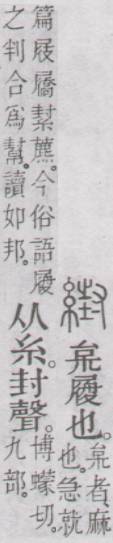 枲履也。枲者、麻
也。急就
篇屐屩絜麤。今俗語履
之判合爲幫。讀如邦。
从糸。封聲。博蠓切。九部。